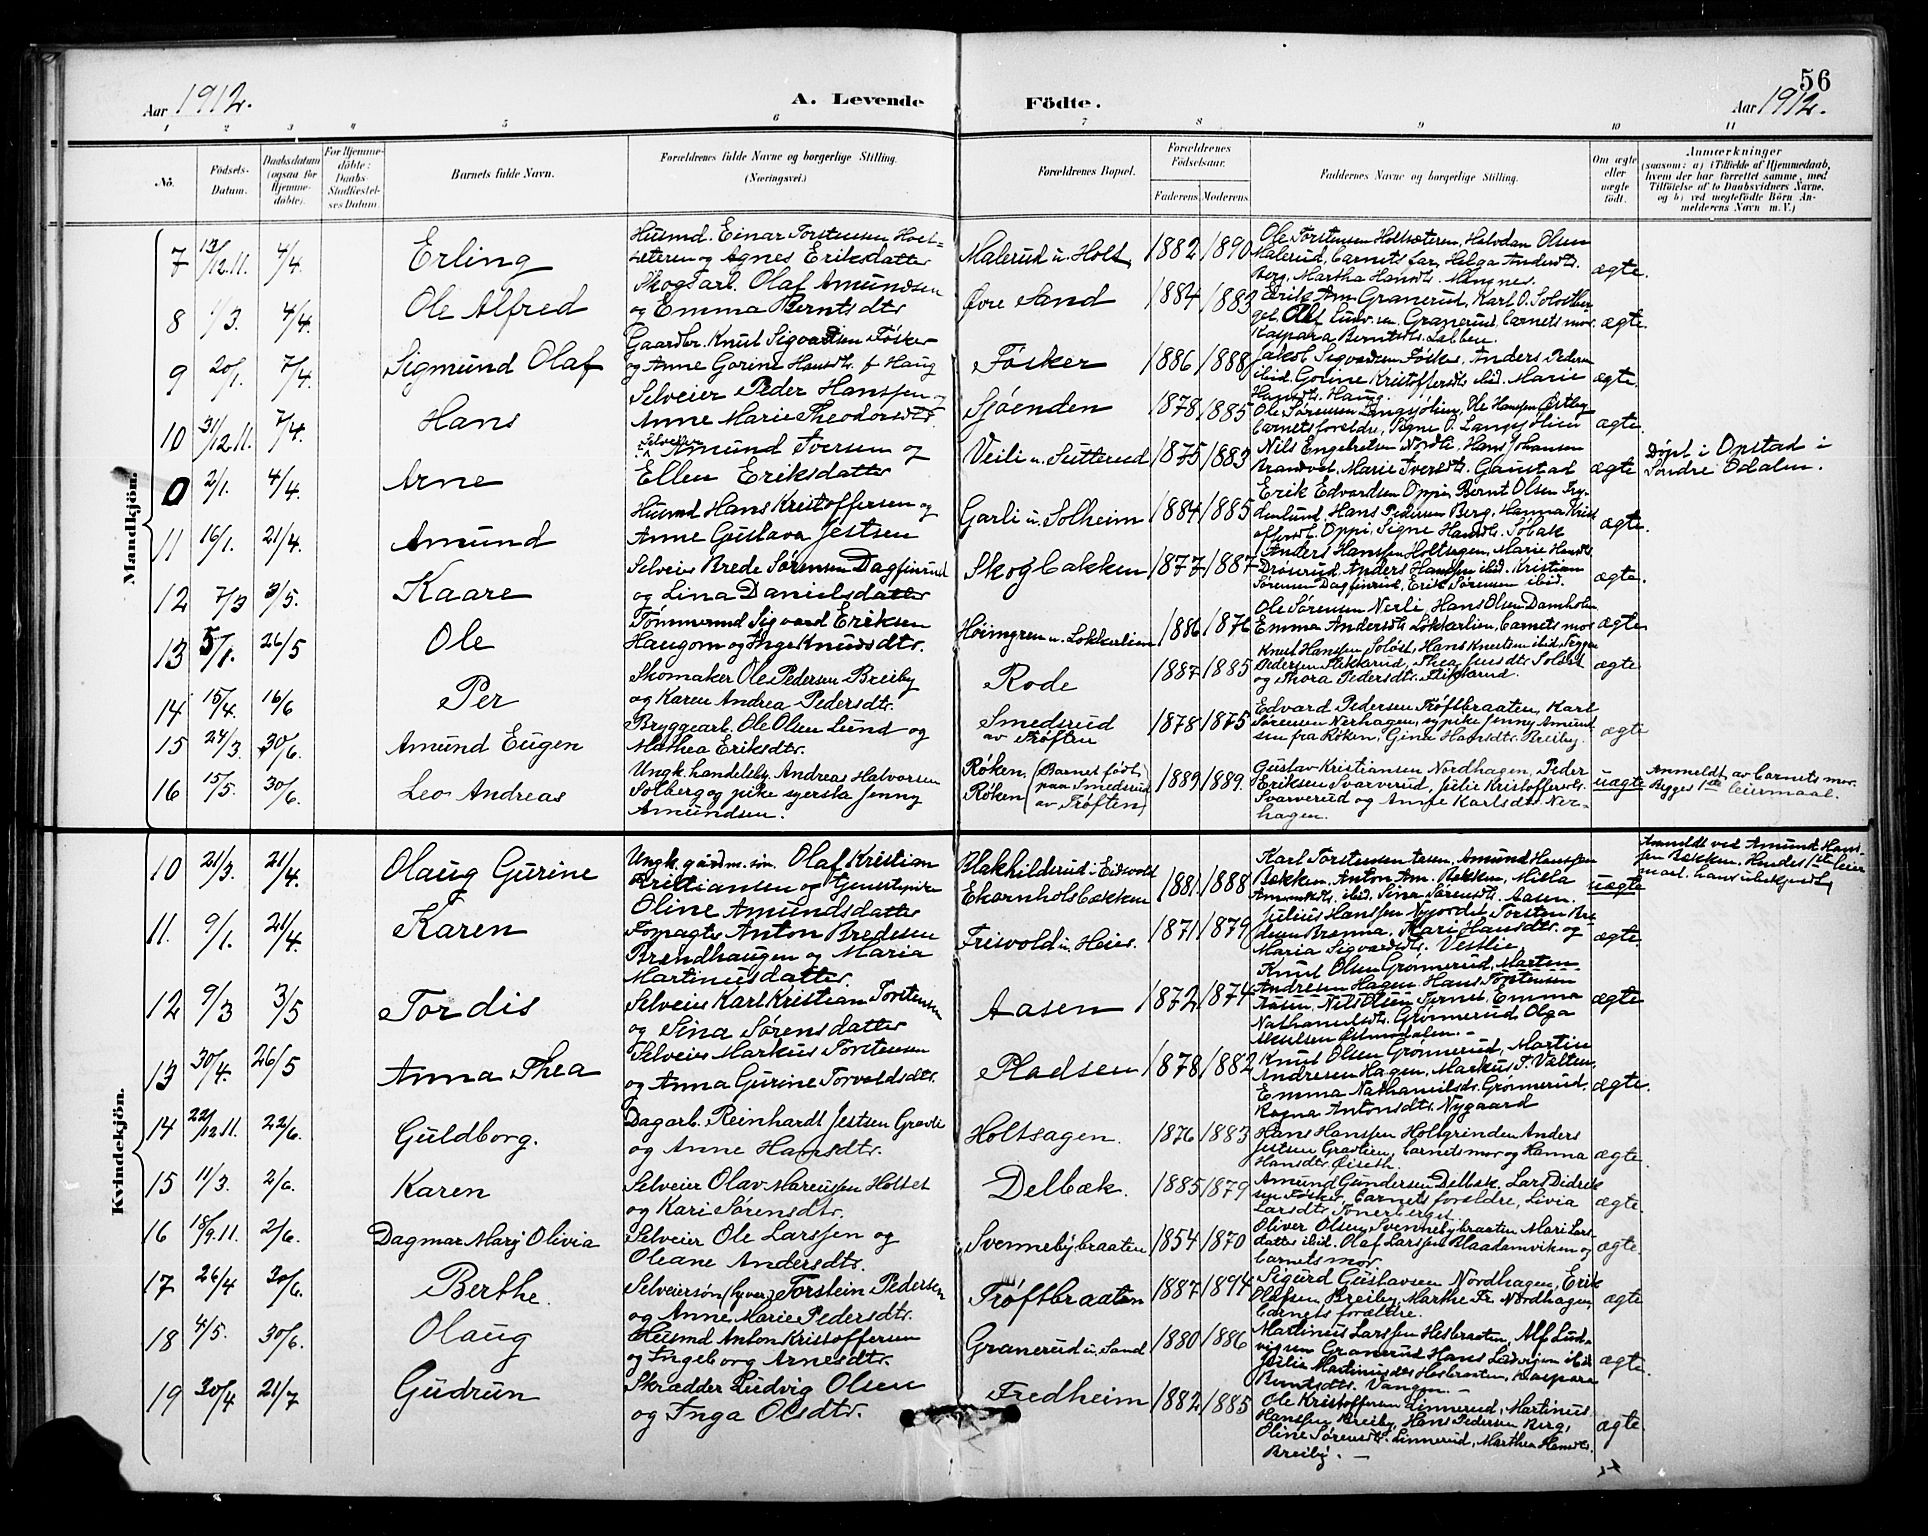 56
Aar 1912.
A. Levende
Födte.
Aar 1912.
1 2 3 4 5 6 7 8 9 10 11
Nö.
Födsels-
Datum.
Daabsdatum
(ogsaa for
Hjemme-
döbte).
For Hjemme-
döbte:
Daabs-
Stadfæstel-
ses Datum.
Barnets fulde Navn.
Forældrenes fulde Navne og borgerlige Stilling.
(Næringsvei.)
Forældrenes Bopæl.
Forældrenes
Födselsaar.
Faderens. Moderens.
Faddernes Navne og borgerlige Stilling.
Om ægte
eller
uægte
født.
Anmærkninger
(saasom: a) i Tilfælde af Hjemmedaab,
hvem der har forrettet samme, med
Tilföielse af to Daabsvidners Navne,
og b) ved uægtefödte Börn An-
melderens Navn m. V.)
Mandkjön.
7 13/12.11. 4/4. Erling
Husmd. Einar Torstensen Holt-
sæteren og Agnes Eriksdatter
Malerud u. Holt 1882 1890
Ole Torstensen Holtsæteren, Halvdan Olsen
Malerud, barnets far, Helga Andersdt.
Berg, Martha Hansdt. Mangnes.
ægte.
8 1/3. 4/4. Ole Alfred
Skogsarb. Olaf Amundsen
og Emma Berntsdtr.
Øvre Sand 1884 1883
Erik Am. Granerud, Karl O. Solodber
Granerud, barnets mor
Kaspara Berntsdt.
ægte.
9 20/1. 7/4. Sigmund Olaf
Gaardbr. Knut Sigvardsen Føsker
og Anne Gorine Hansdt. f. Haug
Føsker 1886 1888
Jakob Sigvardsen Føsker, Anders Pedersen
ibid. Gorine Kristoffersdt. ibid. Marie
Hansdt. Haug.
ægte.
10 31/12.11. 7/4. Hans
Selveier Peder Hanssen og
Anne Marie Theodorsdtr.
Sjøenden 1878 1885
Ole Sørensen Langsjølien, Ole Hanssen Østby
barnets foreldre, Signe O. Langsjølien
ægte.
0 2/1. 4/4. Arne
Selveier Amund Iversen og
Ellen Eriksdatter
Veili u. Sutterud 1875 1883
Nils Engebretsen Nordli, Hans Johansen
Brandvol, Marie Iversdt. Gaustad
ægte
Døpt i Opstad i
Søndre Odalen.
11 16/1. 21/4. Amund
Husmd Hans Kristoffersen og
Anne Gustava Jestsen
Garli u. Solheim 1884 1885
Erik Edvardsen Oppi, Bernt Olsen Try-
denlund, Hans Pedersen Berg, Hanna Krist
offersdt. Oppi, Signe Hansdt. Solbak
ægte.
12 7/3 3/5. Kaare
Selveier Brede Sørensen Dagfinrud
og Lina Danielsdatter
Skogbakken 1877 1887
Anders Hanssen Holtsagen, Marie Hansdt.
Drisrud, Anders Hanssen ibid. Kristian
Sørensen Dagfinrud, Erik Sørensen ibid.
ægte.
13 5/1. 26/5 Ole
Tømmermd Sigvard Eriksen
Haugom og Inga Knudsdtr.
Høimyren u. Lokkerlien 1886 1876
Ole Sørensen Nerli, Hans Olsen Damholen
Emma Andersdt. Løkkerlien, barnets mor
ægte
14 15/4. 16/6 Per
Skomaker Ole Pedersen Breiby
og Karen Andrea Pedersdtr.
Rode 1887 1885
Knut Hanssen Soløst, Hans Knutsen ibid, Trygve
Pedersen Flikkerud, Thea Jensdtr Soløst
og Thora Pedersdtr. Flikkerud.
ægte
15 24/3 30/6. Amund Eugen
Bryggearb. Ole Olsen Lund og
Mathea Eriksdtr.
Smederud
av Trøften
1878 1875
Edvard Pedersen Trøftbraaten, Karl
Sørensen Nerhagen, sypike Jenny Amund
sen fra Røken, Gina Hansdtr. Breiby.
ægte
16 15/5. 30/6. Leo Andreas
Ungk. handelsbj. Andreas Halvorsen
Solberg og pike syerske Jenny
Amundsen.
Røken (Barnet født
Røken paa Smederud
av Trøften)
1889 1889.
Gustav Kristiansen Nordhagen, Peder
Eriksen Svarverud, Julie Kristoffersdt.
Svarverud og Anne Karlsdtr. Ner-
hagen.
uægte
Anmeldt av barnets mor.
Begges 1ste leiermaal.
Kvindekjön.
10 21/3. 21/4. Olaug Gurine
Ungk. gaardm. søn Olaf Kristian
Kristiansen og tjenestepike
Oline Amundsdatter
Blakhilderud i Eidsvold
Ekornholsbækken
1881 1888
Karl Torstensen Aasen, Amund Hanssen
Bækken, Anton Am. Bækken, Milla
Amundsdt. ibid. Sina Sørensdt. Aasen.
uægte
Anmeldt ved Amund Hans-
sen Bækken. Hendes 1ste leier
maal. hans ubekjendt.
11. 9/1. 21/4. Karen
Forpagter Anton Bredesen
Brandhaugen og Maria
Martinusdatter.
Frisvold u. Heier. 1871 1879
Julius Hanssen Nyjordet, Torsten Bre
desen Brenna, Kari Hansdtr. og
Maria Sigvardsdt. Vestlie
ægte.
12 9/3 3/5 Tordis
Selveier Karl Kristian Torstensen
og Sina Sørensdatter
Aasen 1872 1874
Knut Olsen Grønnerud, Marten
Andresen Hagen, Hans Torstensen
Aasen, Nils Olsen Tjernes, Emma
Nathanielsdt. Grønnerud, Olga
ægte
13 30/4. 26/5 Anna Thea
Selveier Markus Torstensen
og Anna Gurine Torvaldsdtr.
Pladsen 1878 1882
Knut Olsen Grønnerud, Martin
Andresen Hagen, Markus T. Valtsen,
Emma Nathanielsdt. Grønnerud,
Ragna Antonsdtr. Nygaard
ægte.
14 22/12.11. 22/6. Guldborg.
Dagarb. Reinhardt Jestsen Gravli
og Anne Hansdtr.
Holtsagen. 1876 1883
Hans Hanssen Holtgrinden, Anders
Jestsen Gravlien, barnets mor og Hanna
Hansdtr. Øiseth.
ægte.
15 11/3. 2/6. Karen
Selveier Olav Mareussen Holtet
og Kari Sørensdtr.
Delbæk. 1885 1879
Amund Gundersen Delbæk, Lars Didrik
sen Føsker, barnets foreldre, Livia
Larsdtr. Tonerberget
ægte.
16 18/9.11. 2/6. Dagmar Marj Olivia
Selveier Ole Larssen og
Oleane Andersdtr.
Svennebybraaten 1854 1870
Oliver Olsen Svennebybraaten, Mari Lars
datter ibid. Olaf Larssen Blaadamviken og
barnets mor.
ægte.
17 26/4 30/6. Berthe.
Selveiersøn (hjver) Torstein Pedersen
og Anne Marie Pedersdtr.
Trøftbraaten 1887 1894
Sigurd Gustavsen Nordhagen, Erik
Olafsen Breiby, Marthe Fr. Nordhagen,
barnets forældre.
ægte
18 4/5. 30/6. Olaug
Husmd Anton Kristoffersen
og Ingeborg Arnesdtr.
Granerud u. Sand 1880 1886
Martinus Larssen Hesbraaten, Alf Lud-
vigsen Granerud, Hans Ludvigsen ibid
Julie Martinusdtr Hesbraaten, Kaspara
Berntsdtr. Vangen.
ægte
19 30/4 21/7 Gudrun
Skrædder Ludvig Olsen
og Inga Olsdtr.
Fredheim 1882 1885
Ole Kristoffersen Linnerud, Martinus
Hanssen Breiby, Hans Pedersen Berg,
Oline Sørensdt. Linnerud, Marthea Hansdt.
Breiby.
ægte.